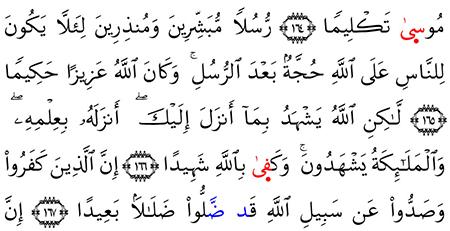 مُوسىٰ تَكْلِيمًا ﴿١٦٤﴾ رُسُلًا مُبَشِّرِينَ وَمُنذِرِينَ لِئَلَّا يَكُونَ
لِلنَّاسِ عَلَى اللَّهِ حُجَّةٌ بَعْدَ الرُّسُلِ ۚ وَكَانَ اللَّهُ عَزِيزًا حَكِيمًا
﴿١٦٥﴾ لَٰكِنِ اللَّهُ يَشْهَدُ بِمَا أَنزَلَ إِلَيْكَ ۖ أَنزَلَهُ بِعِلْمِهِ ۖ
وَالْمَلَائِكَةُ يَشْهَدُونَ ۚ وَكَفىٰ بِاللَّهِ شَهِيدًا ﴿١٦٦﴾ إِنَّ الَّذِينَ كَفَرُوا
وَصَدُّوا عَن سَبِيلِ اللَّهِ قَد ضَّلُّوا ضَلَالًا بَعِيدًا ﴿١٦٧﴾ إِنَّ